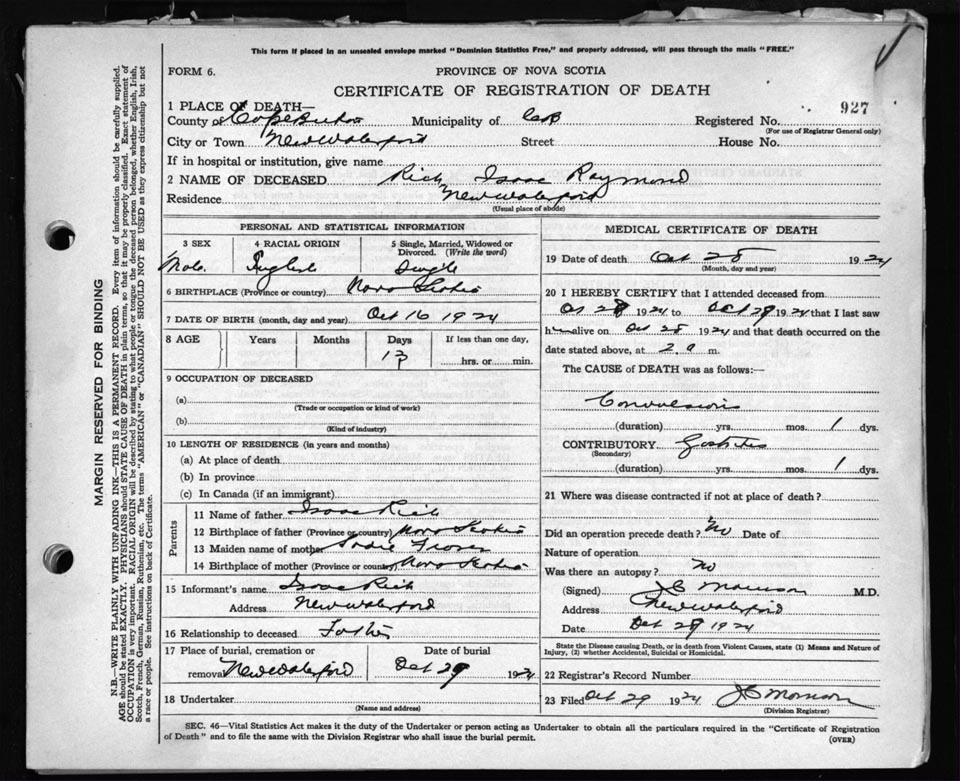 This form if placed in an unsealed envelope marked "Dominion Statistics Free," and properly addressed, will pass through the mails "FREE."
FORM 6.
PROVINCE OF NOVA SCOTIA
CERTIFICATE OF REGISTRATION OF DEATH
927
1 PLACE OF DEATH—
County of Cape Breton Municipality of CB Registered No.
(For use of Registrar General only)
City or Town New Waterford Street House No.
If in hospital or institution, give name
2 NAME OF DECEASED Rich, Isaac Raymond
Residence New Waterford
(Usual place of abode)
PERSONAL AND STATISTICAL INFORMATION
3 SEX 4 RACIAL ORIGIN 5 Single, Married, Widowed or Divorced. (Write the word)
Male. English Single
6 BIRTHPLACE (Province or country) Nova Scotia
7 DATE OF BIRTH (month, day and year) Oct 16 1924
8 AGE Years Months Days If less than one day,
13 hrs. or min.
9 OCCUPATION OF DECEASED
(a)
(Trade or occupation or kind of work)
(b)
(Kind of industry)
10 LENGTH OF RESIDENCE (in years and months)
(a) At place of death
(b) In province
(c) In Canada (if an immigrant)
Parents
11 Name of father Isaac Rich
12 Birthplace of father (Province or country) Nova Scotia
13 Maiden name of mother Sadie
14 Birthplace of mother (Province or country) Nova Scotia
15 Informant's name Isaac Rich
Address New Waterford
16 Relationship to deceased Father
17 Place of burial, cremation or removal New Waterford
Date of burial Oct 29 1924
18 Undertaker
(Name and address)
MEDICAL CERTIFICATE OF DEATH
19 Date of death Oct 28 1924
(Month, day and year)
20 I HEREBY CERTIFY that I attended deceased from
Oct 28 1924 to Oct 29 1924 that I last saw
h alive on Oct 28 1924 and that death occurred on the
date stated above, at 2.a m.
The CAUSE of DEATH was as follows:—
Convulsions
(duration) yrs. mos. 1 dys.
CONTRIBUTORY Gastritis
(Secondary)
(duration) yrs. mos. 1 dys.
21 Where was disease contracted if not at place of death?
Did an operation precede death? No Date of
Nature of operation
Was there an autopsy? No
(Signed) M.D.
Address New Waterford
Date Oct 29 1924
State the Disease causing Death, or in death from Violent Causes, state (1) Means and Nature of
Injury, (2) whether Accidental, Suicidal or Homicidal.
22 Registrar's Record Number
23 Filed Oct 29 1924 J C Morrison
(Division Registrar)
SEC. 46—Vital Statistics Act makes it the duty of the Undertaker or person acting as Undertaker to obtain all the particulars required in the "Certificate of Registration
of Death" and to file the same with the Division Registrar who shall issue the burial permit.
(OVER)
MARGIN RESERVED FOR BINDING
N.B.—WRITE PLAINLY WITH UNFADING INK—THIS IS A PERMANENT RECORD. Every item of information should be carefully supplied.
AGE should be stated EXACTLY. PHYSICIANS should STATE CAUSE OF DEATH in plain terms, so that it may be properly classified. Exact statement of
OCCUPATION is very important. RACIAL ORIGIN will be described by stating to what people or tongue the deceased person belonged, whether English, Irish,
Scotch, French, German, Russian, Ruthenian, etc. The terms "AMERICAN" or "CANADIAN" SHOULD NOT BE USED as they express citizenship but not
a race or people. See instructions on back of Certificate.